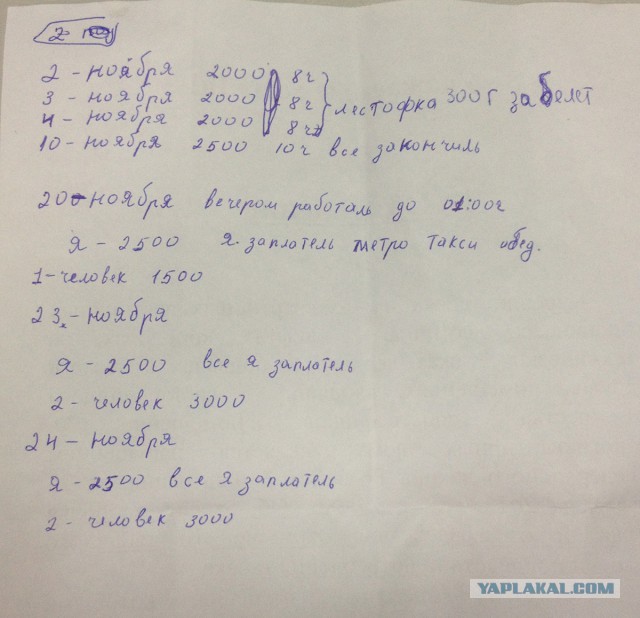 2-
2-ноября 2000 8ч
3-ноября 2000 8ч
4-ноября 2000 8ч
лестофка 300г забелет
10-ноября 2500 10ч все закончиль
20-ноября вечером работаль до 01:00ч
Я-2500 я заплатель метро такси обед.
1-человек 1500
23-ноября
Я-2500 все я заплатель
2-человек 3000
24-ноября
Я-2500 все я заплатель
2-человек 3000
YAPLAKAL.COM